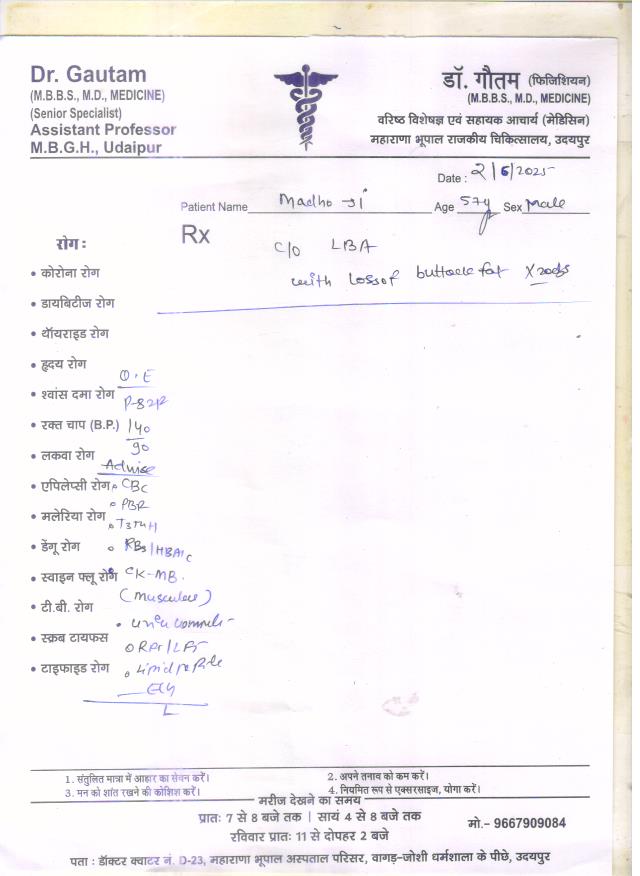 Dr. Gautam
(M.B.B.S., M.D., MEDICINE)
(Senior Specialist)
Assistant Professor
M.B.G.H., Udaipur
डॉ. गौतम (फिजिशियन)
(M.B.B.S., M.D., MEDICINE)
वरिष्ठ विशेषज्ञ एवं सहायक आचार्य (मेडिसिन)
महाराणा भूपाल राजकीय चिकित्सालय, उदयपुर
Date : 2/6/2025
Patient Name Madho Ji Age 57y Sex Male
Rx
C/O LBA
with loss of buttock fat
रोग :
• कोरोना रोग
• डायबिटीज रोग
• थॉयराइड रोग
• हृदय रोग
O.E
• श्वांस दमा रोग P-82
• रक्त चाप (B.P.) 140
90
• लकवा रोग
Advise
• एपिलेप्सी रोग CBC
• मलेरिया रोग
T3T4
• डेंगू रोग RBS/HBA1C
• स्वाइन फ्लू रोग CK-MB.
• टी.बी. रोग
• स्क्रब टायफस
• टाइफाइड रोग Lipid profile
1. संतुलित मात्रा में आहार का सेवन करें।
2. अपने तनाव को कम करें।
3. मन को शांत रखने की कोशिश करें।
4. नियमित रूप से एक्सरसाइज, योगा करें।
मरीज देखने का समय
प्रातः 7 से 8 बजे तक | सायं 4 से 8 बजे तक
रविवार प्रातः 11 से दोपहर 2 बजे
मो.- 9667909084
पता : डॉक्टर क्वाटर नं. D-23, महाराणा भूपाल अस्पताल परिसर, वागड़-जोशी धर्मशाला के पीछे, उदयपुर